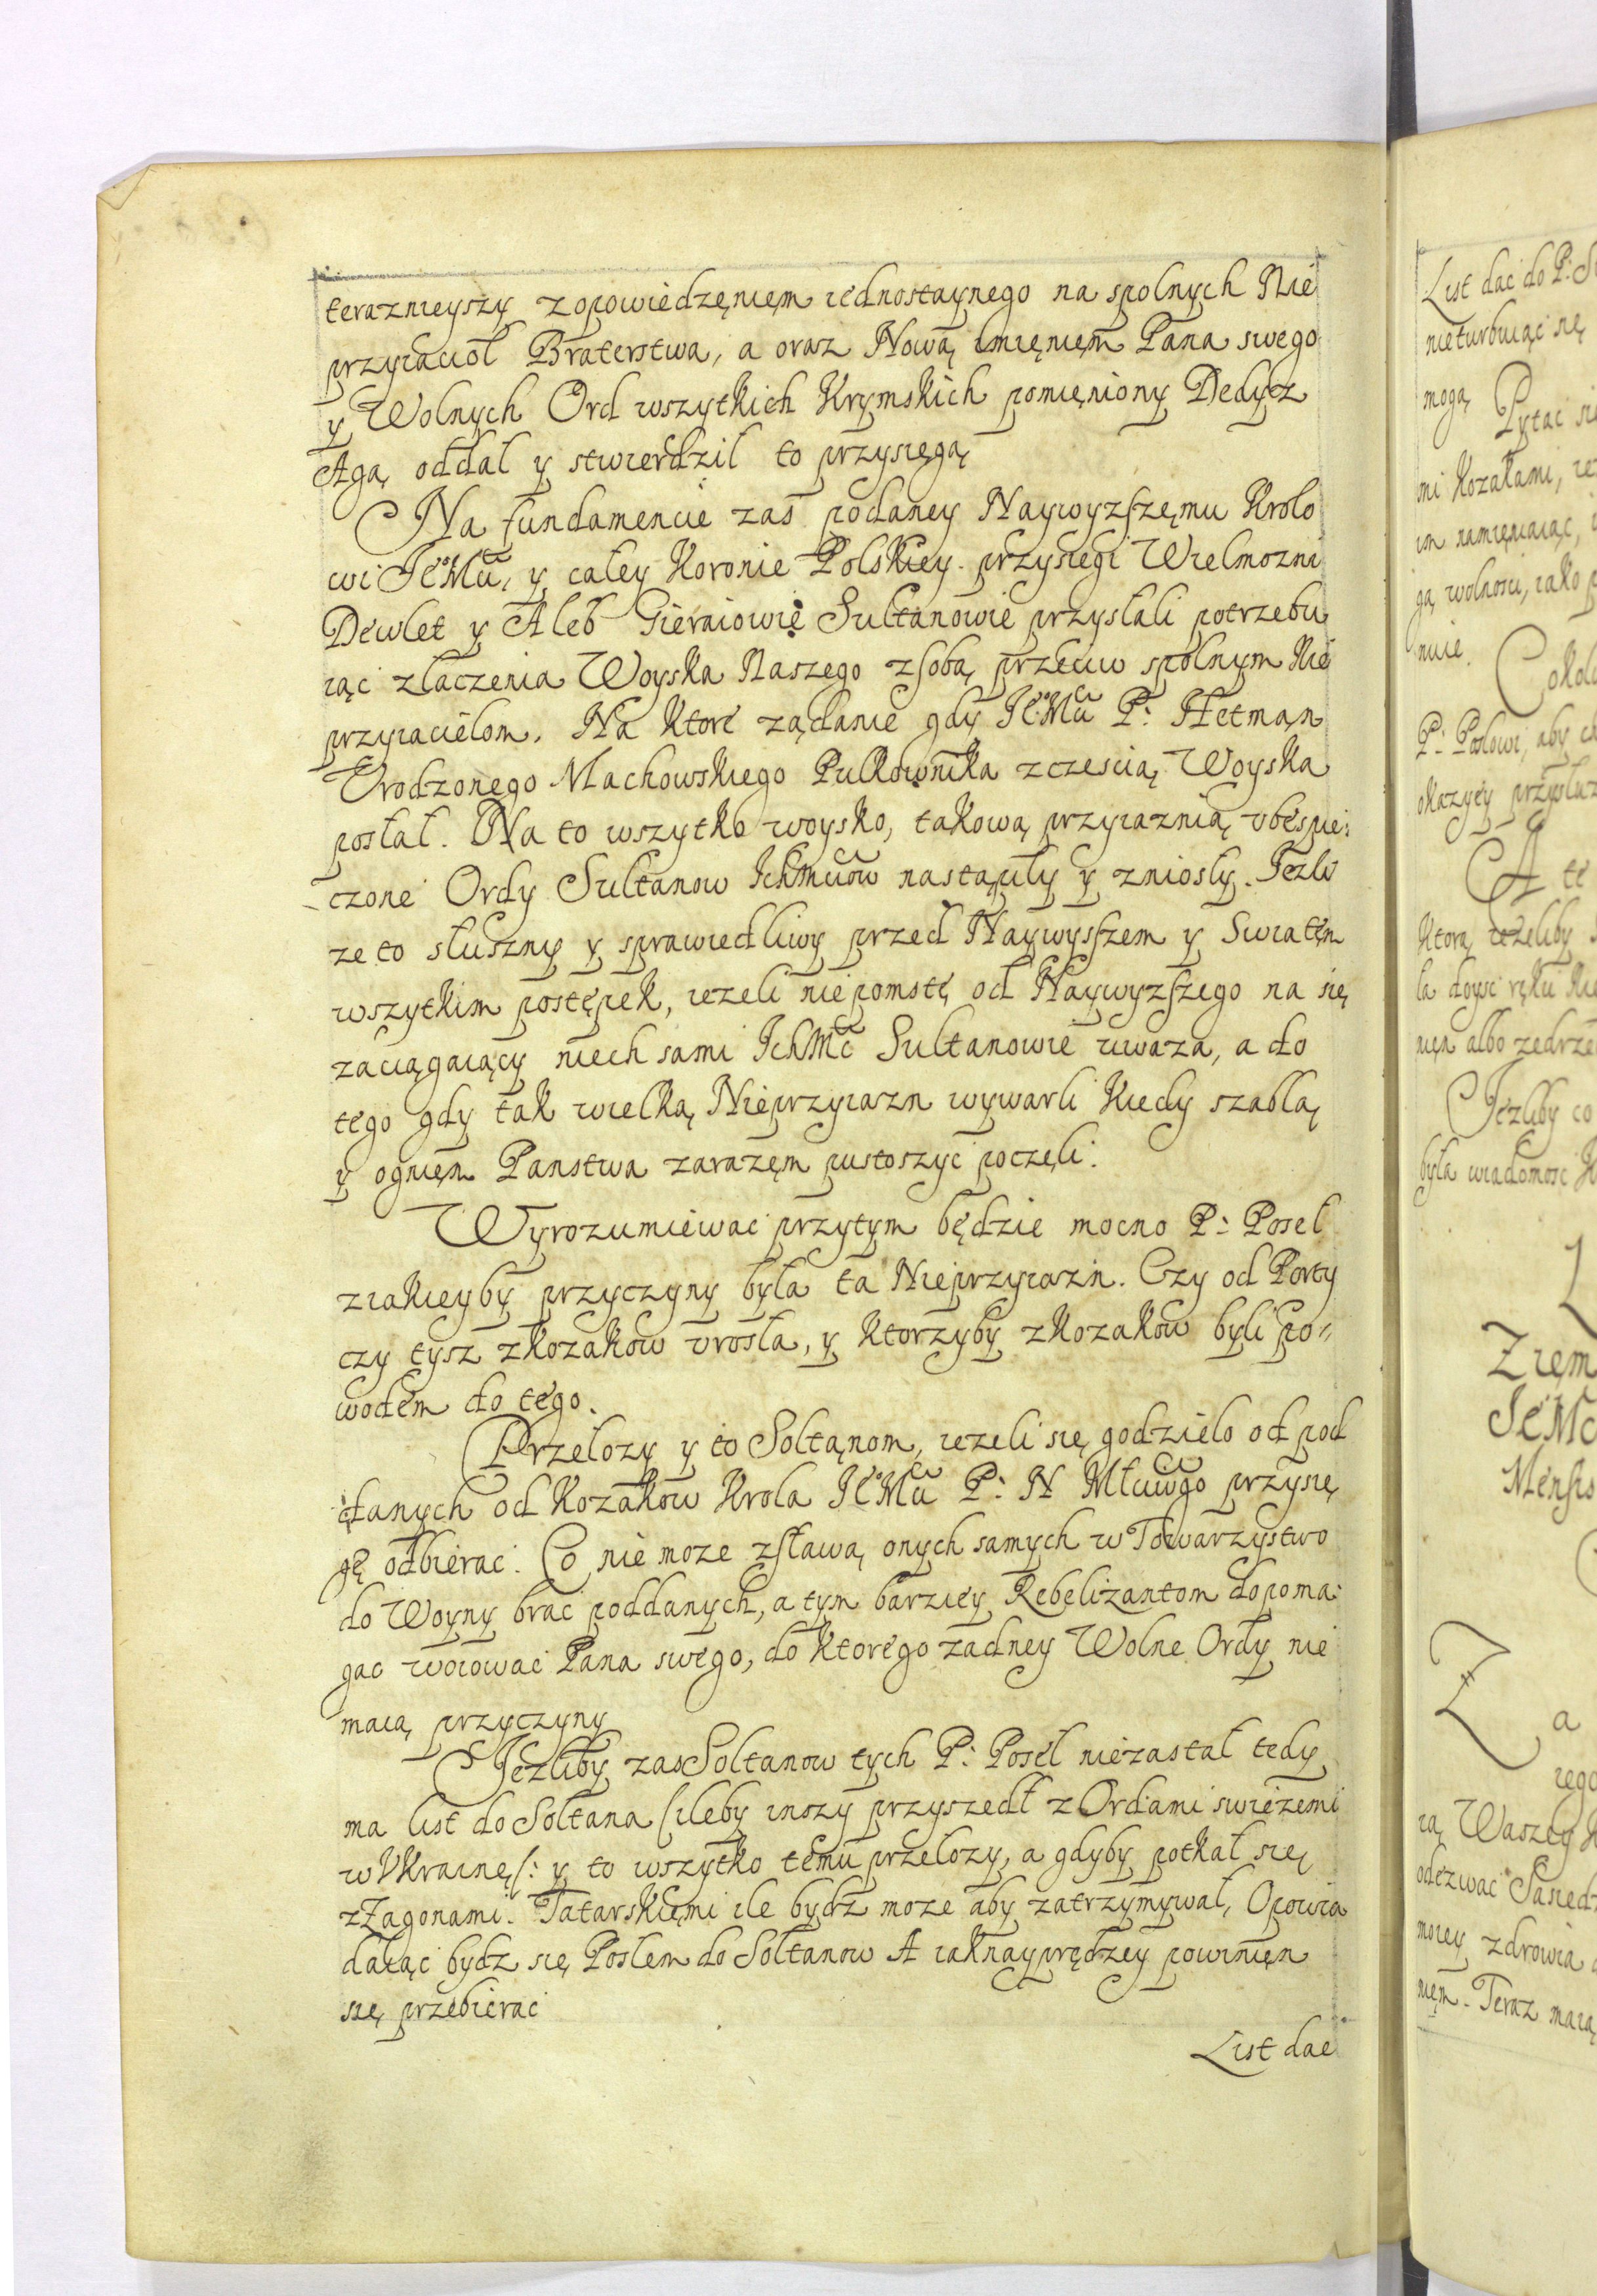 teraznieyszy zopowiedzęnięm iednostaynego na spolnych Nie
przyiacioł Braterstwa, a oraz Nową imięnięm Pana swego
y Wolnych Ord wszytkich Krymskich pomięniony Dedycz
Aga, oddał y stwierdził to przysięgą
Na fundamencie zaś podaney Naywyzszęmu Krolo
wi JeMu, y całey Koronie Polskiey przysięgi Wielmozni
Dewlet y Aleb Gieraiowie Sułtanowie przysłali potrzebu
iąc złaczenia Woyska Naszego zsobą przeciw spolnym Nie
przyiacielom. Na Ktore ządanie gdy JeMu P: Hetman
Vrodzonego Machowskiego Pułkownika zczescią Woyska
posłał. Na to wszytko woysko, takową przyiaznią vbespie:
czone Ordy Sułtanow Ichmciow nastąpiły y zniosły. Jezli
ze to słuszny y sprawiedliwy przed Naywyszszem y Swiatęm
wszytkim postępek, iezeli nie pomstę od Naywyzszego na się
zaciągaiący niech sami IchMc Sułtanowie uwaza, a do
tego gdy tak wielką Nieprzyiazn wywarli Kiedy szablą
y ognięm Panstwa zarazęm pustoszyć poczęli.
Wyrozumiewac przytym będzie mocno P: Poseł
ziakieyby przyczyny była ta Nieprzyiazn. Czy od Porty
czy tysz zkozakow vrosła, y ktorzyby zkozakow byli po"
wodem do tego.
Przełozy y to Sołtąnom, iezeli się godzieło od pod
danych od Kozakow Krola JeMu P: N Młciwgo przysię
gę odbierac. Co nie moze zsławą onych samych w Towarzystwo
do Woyny brac poddanych, a tym barziey Rebelizantom dopoma:
gac woiowac Pana swego, do ktorego zadney Wolne Ordy nie
maią przyczyny
Jezliby zas Sołtanow tych P: Poseł niezastał tedy
ma list do Sołtana (ileby inszy przyszedł z Ordami swiezemi
w Vkrainę/: y to wszytko temu przełozy, a gdyby potkał się
zZagonami Tatarskięmi ile bydz moze aby zatrzymywał, Opowia
daiąc bydz się Posłem do Sołtanow A iaknayprędzey powinięn
się przebierac
List dac
List dac do P: S
nieturbuiąc się
mogą Pytac się
mi Kozakami,
im namięniaiąc,
gą wolnosci, iako
nie. Cokol
P: Posłowi, aby
okazyey przysłuz
A te
Ktorą iezeliby
la doysc ręku
albo zedrze
Jezliby co
była wiadomosc
Zięm
JeMc
Mensis
Z a
iego
ią Waszey
odezwac Sąsiedz
moiey zdrowia
nięm. Teraz maią